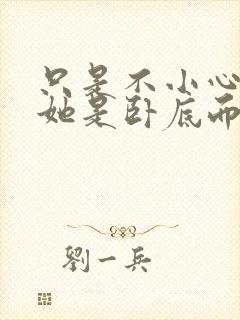 只是不小心
她是卧底而
劉一兵